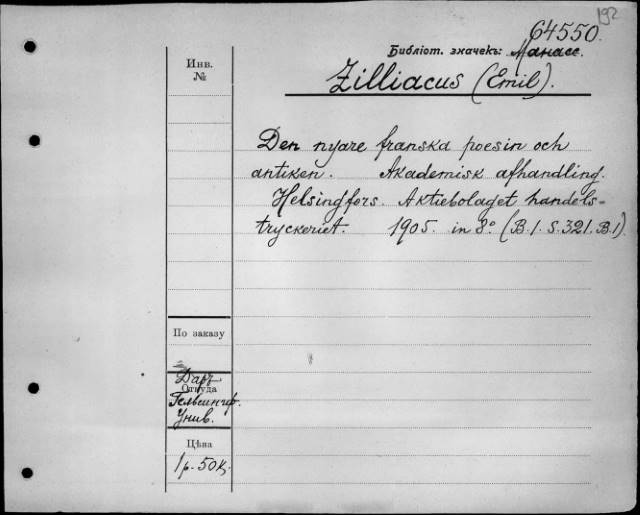 192
64550.
Библіот. значекъ: Манасс.
Инв.
№
Zilliacus (Emil).
Den nyare franska poesin och
antiken. Akademisk afhandling.
Helsingfors. Aktiebolaget handels-
tryckeriet. 1905. in 8° (B.1.S.321.B.1).
По заказу
Даръ
Откуда
Гельсингф.
Унив.
Цѣна
1 р. 50 к.